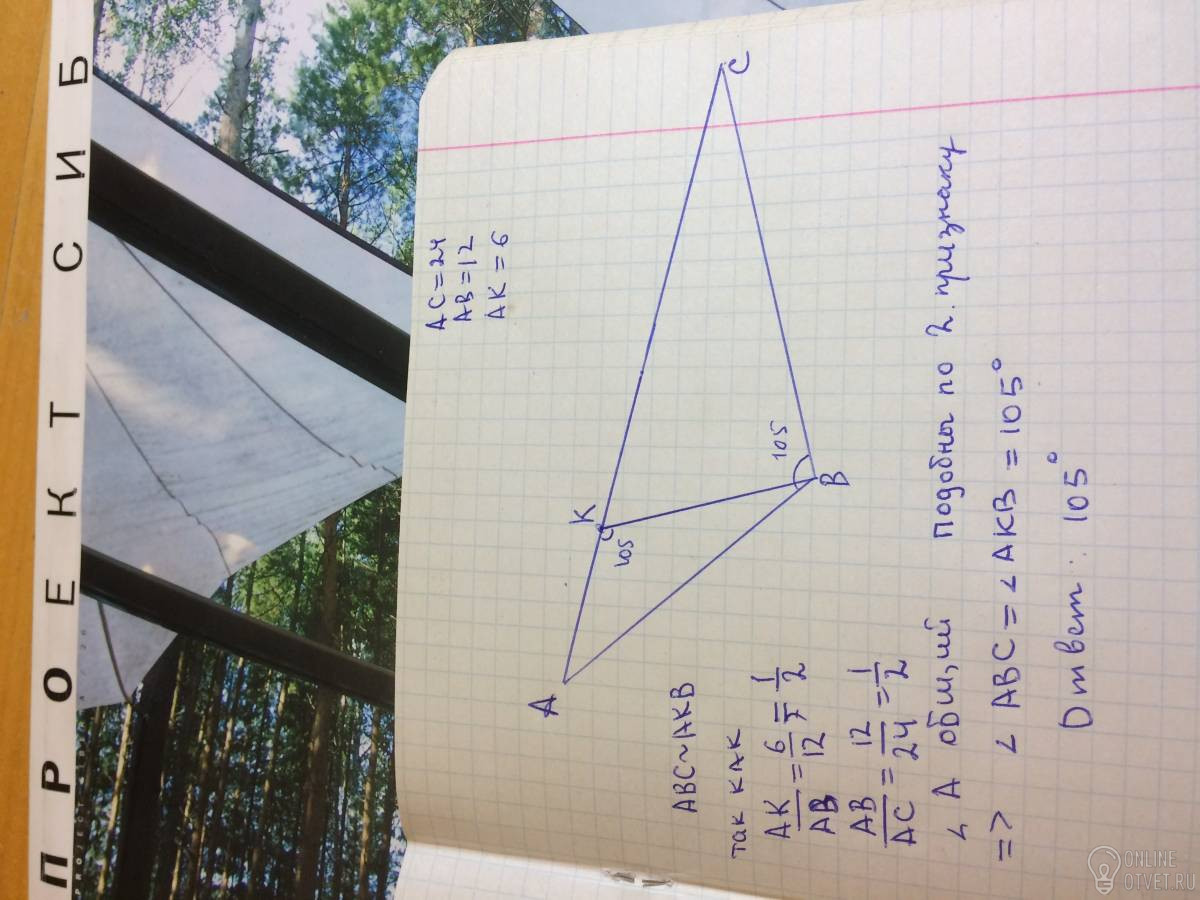 ПРОЕКТ СИБ
AC = 24
AB = 12
AK = 6
A
K
C
B
105
105
ABC ~ AKB
так как
AK/AB = 6/12 = 1/2
AB/AC = 12/24 = 1/2
∠ A общий подобны по 2. признаку
=> ∠ ABC = ∠ AKB = 105°
Ответ 105°
ONLINE
OTVET.RU